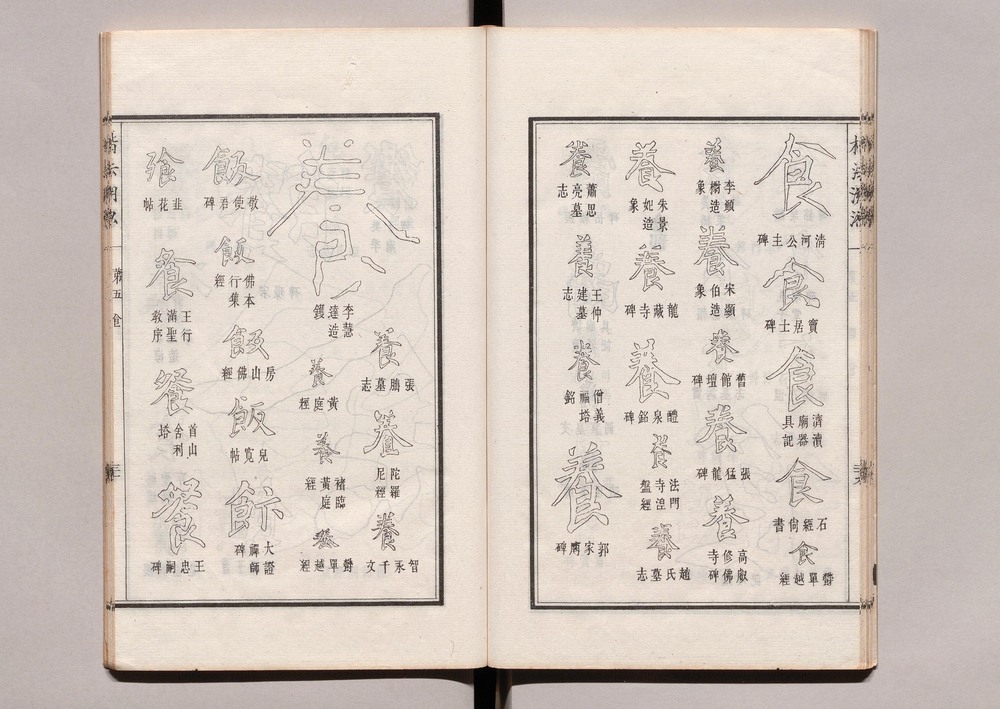 楷法溯源
食
清河公主碑
食
寶居士碑
食
濟瀆廟器具記
食
石經尚書
食
欝單越經
養
養
宋顯伯造象
養
舊館壇碑
養
張猛龍碑
養
高叡修佛寺碑
養
朱景妃造象
養
龍藏寺碑
養
醴泉銘碑
養
法門寺湼盤經
養
趙氏墓志
養
蕭思亮墓志
養
王仲建墓志
養
僧義福塔銘
養
郭家廟碑
養
李慧達造鑊
養
張鵬墓志
養
陀羅尼經
養
智永千文
養
黃庭經
養
褚臨黃庭經
養
欝單越經
飯
敬使君碑
飯
佛本行集經
飯
房山佛經
飯
兒寬帖
餘
大證禪師碑
飱
韭花帖
餐
王行滿聖教序
餐
首山舍利塔
餐
王忠嗣碑
楷法溯源
第五
食